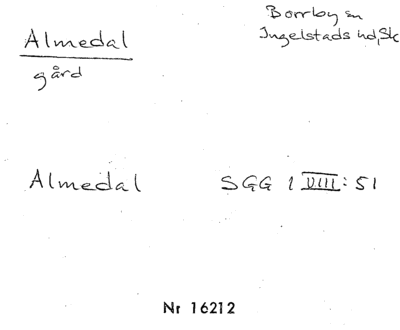 Almedal
gård
Borrby sn
Ingelstads hd, Sk
Almedal SGG 1 VIII: 51
Nr 16212